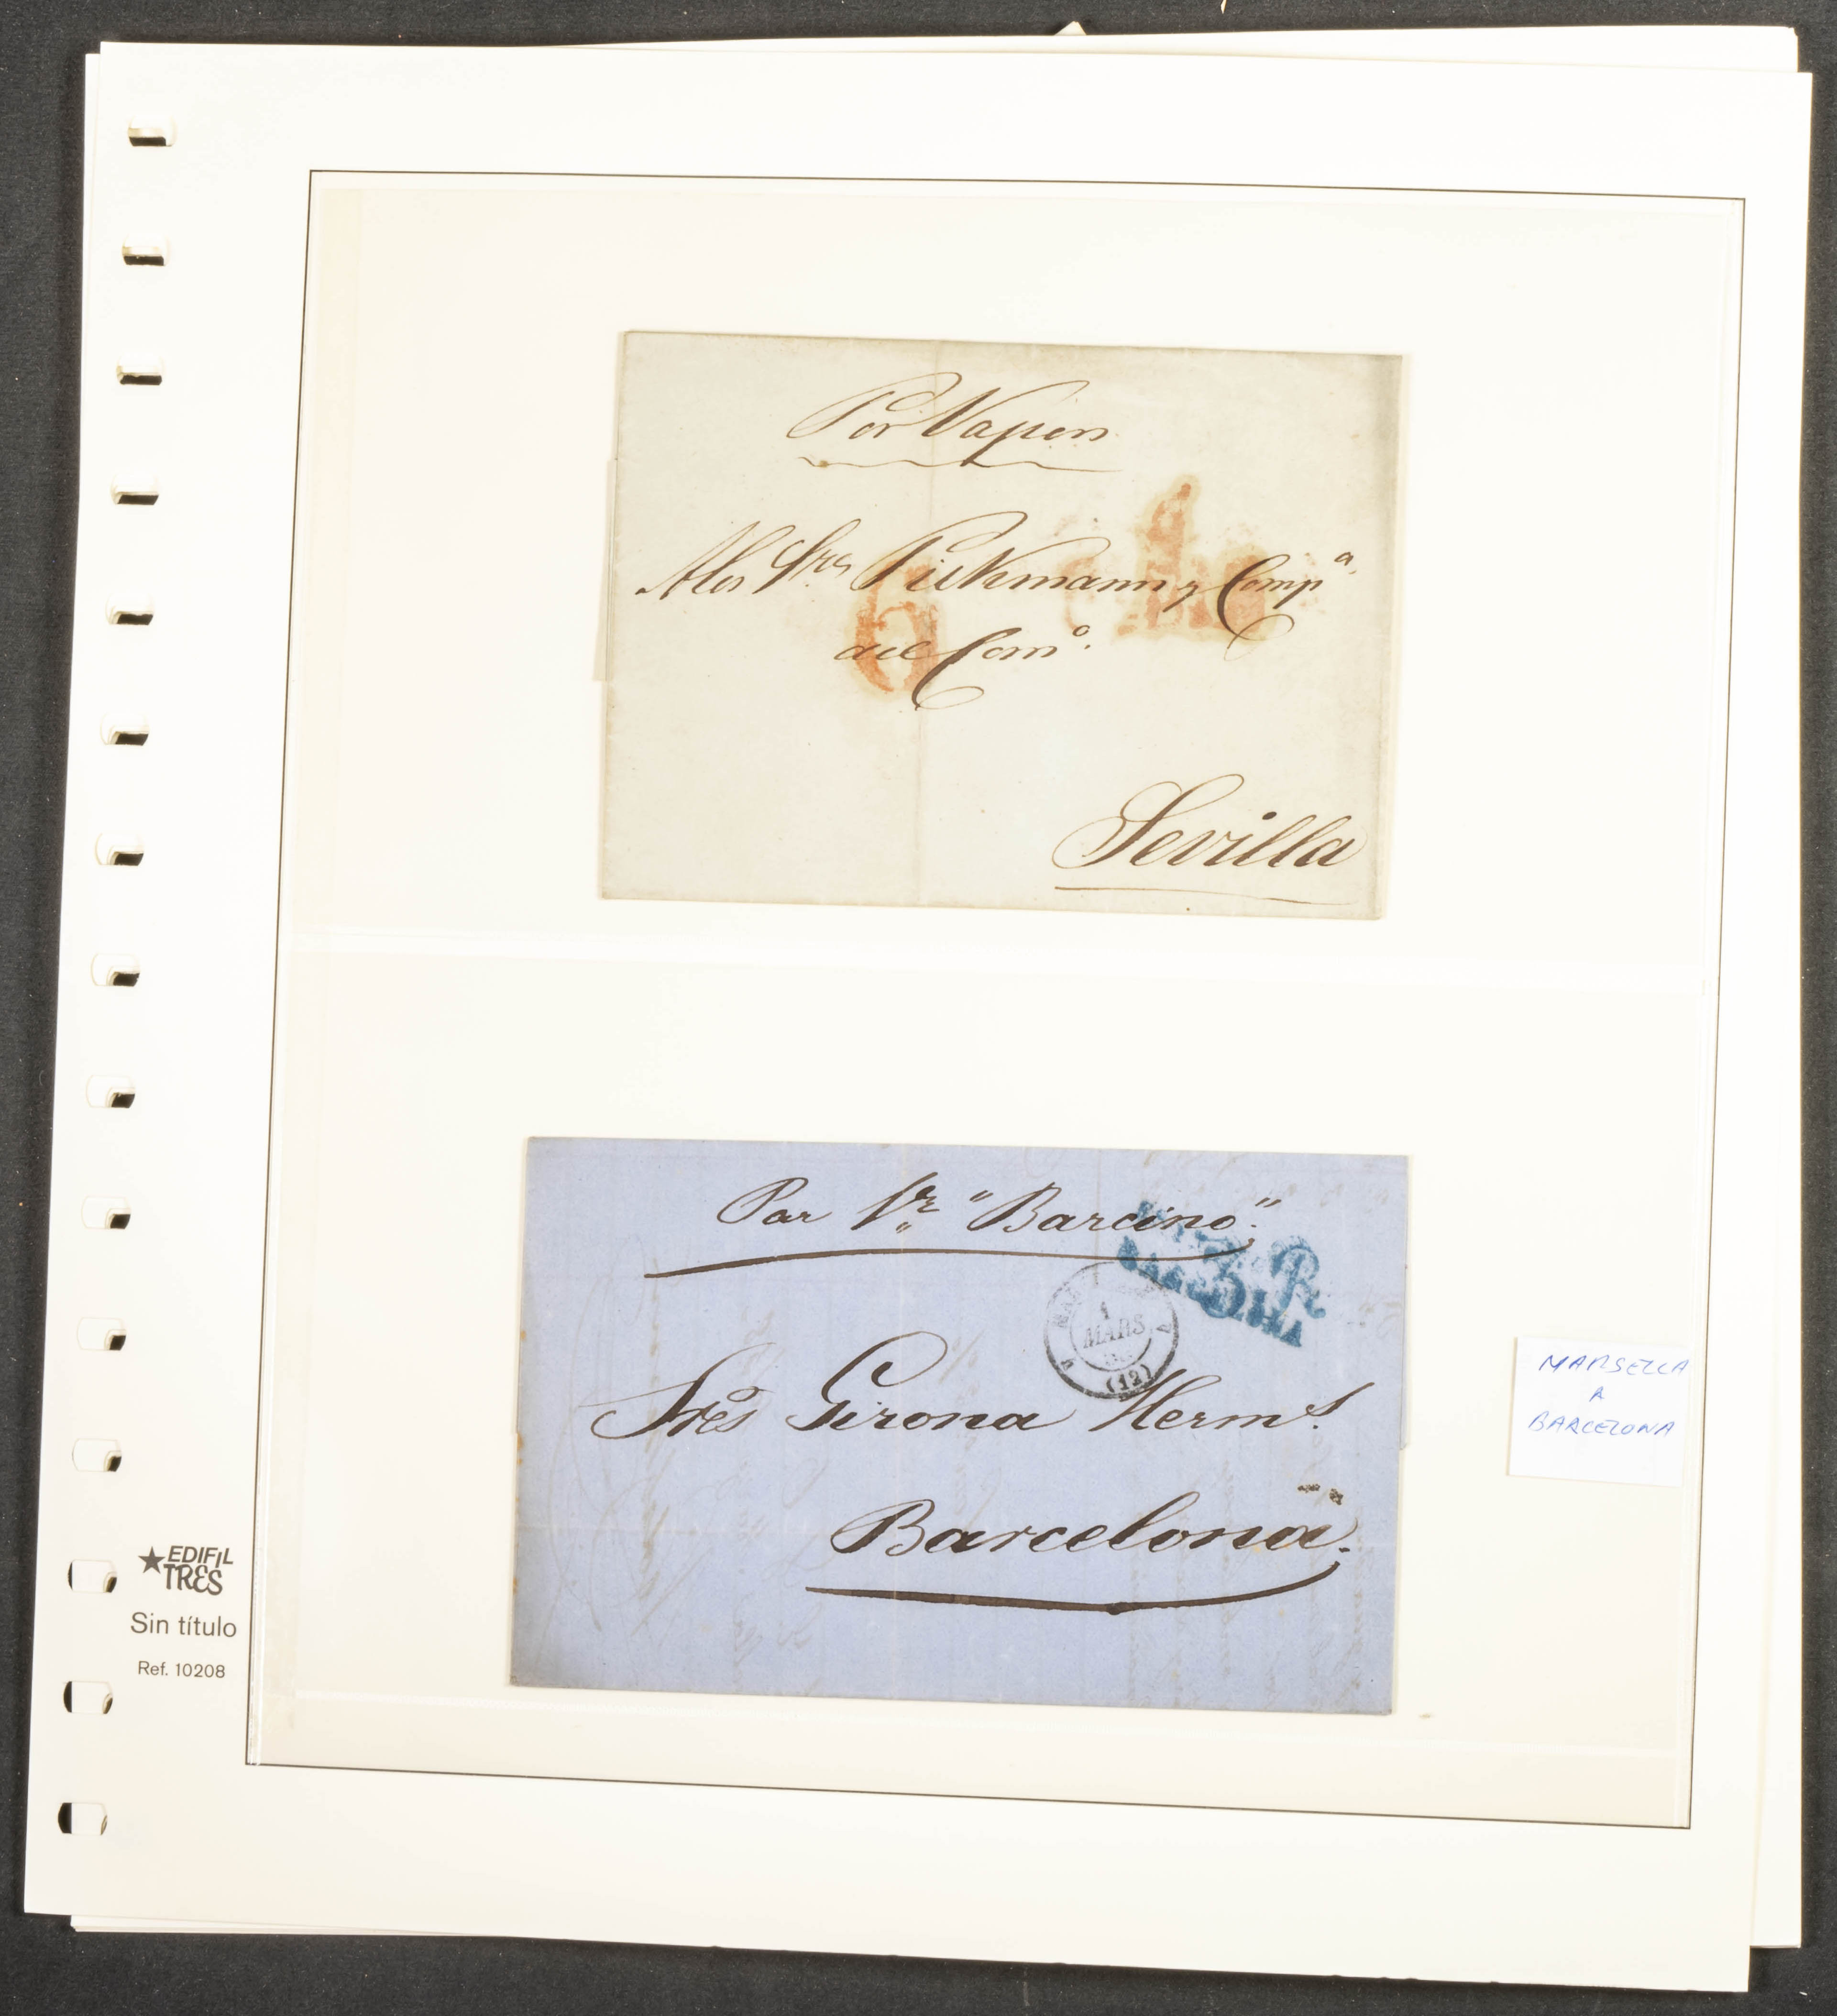 Por Vapor
A los Sres Pickmann y Compª
del Comº.
6
Sevilla
Por Vr. "Barcino".
3 R
BARCELONA
1
MARS
(12)
Sres Girona Herms.
Barcelona.
MARSELLA
A
BARCELONA
EDIFIL
TRES
Sin título
Ref. 10208